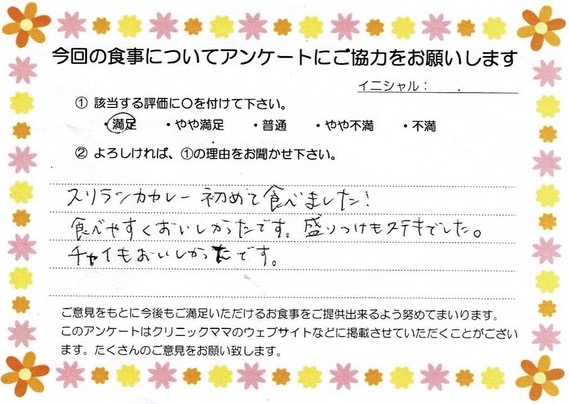 今回の食事についてアンケートにご協力をお願いします
イニシャル：
① 該当する評価に〇を付けて下さい。
・満足 ・やや満足 ・普通 ・やや不満 ・不満
② よろしければ、①の理由をお聞かせ下さい。
スリランカカレー 初めて食べました！
食べやすくおいしかったです。盛りつけもステキでした。
チャイもおいしかったです。
ご意見をもとに今後もご満足いただけるお食事をご提供出来るよう努めてまいります。
このアンケートはクリニックママのウェブサイトなどに掲載させていただくことがござい
ます。たくさんのご意見をお願い致します。